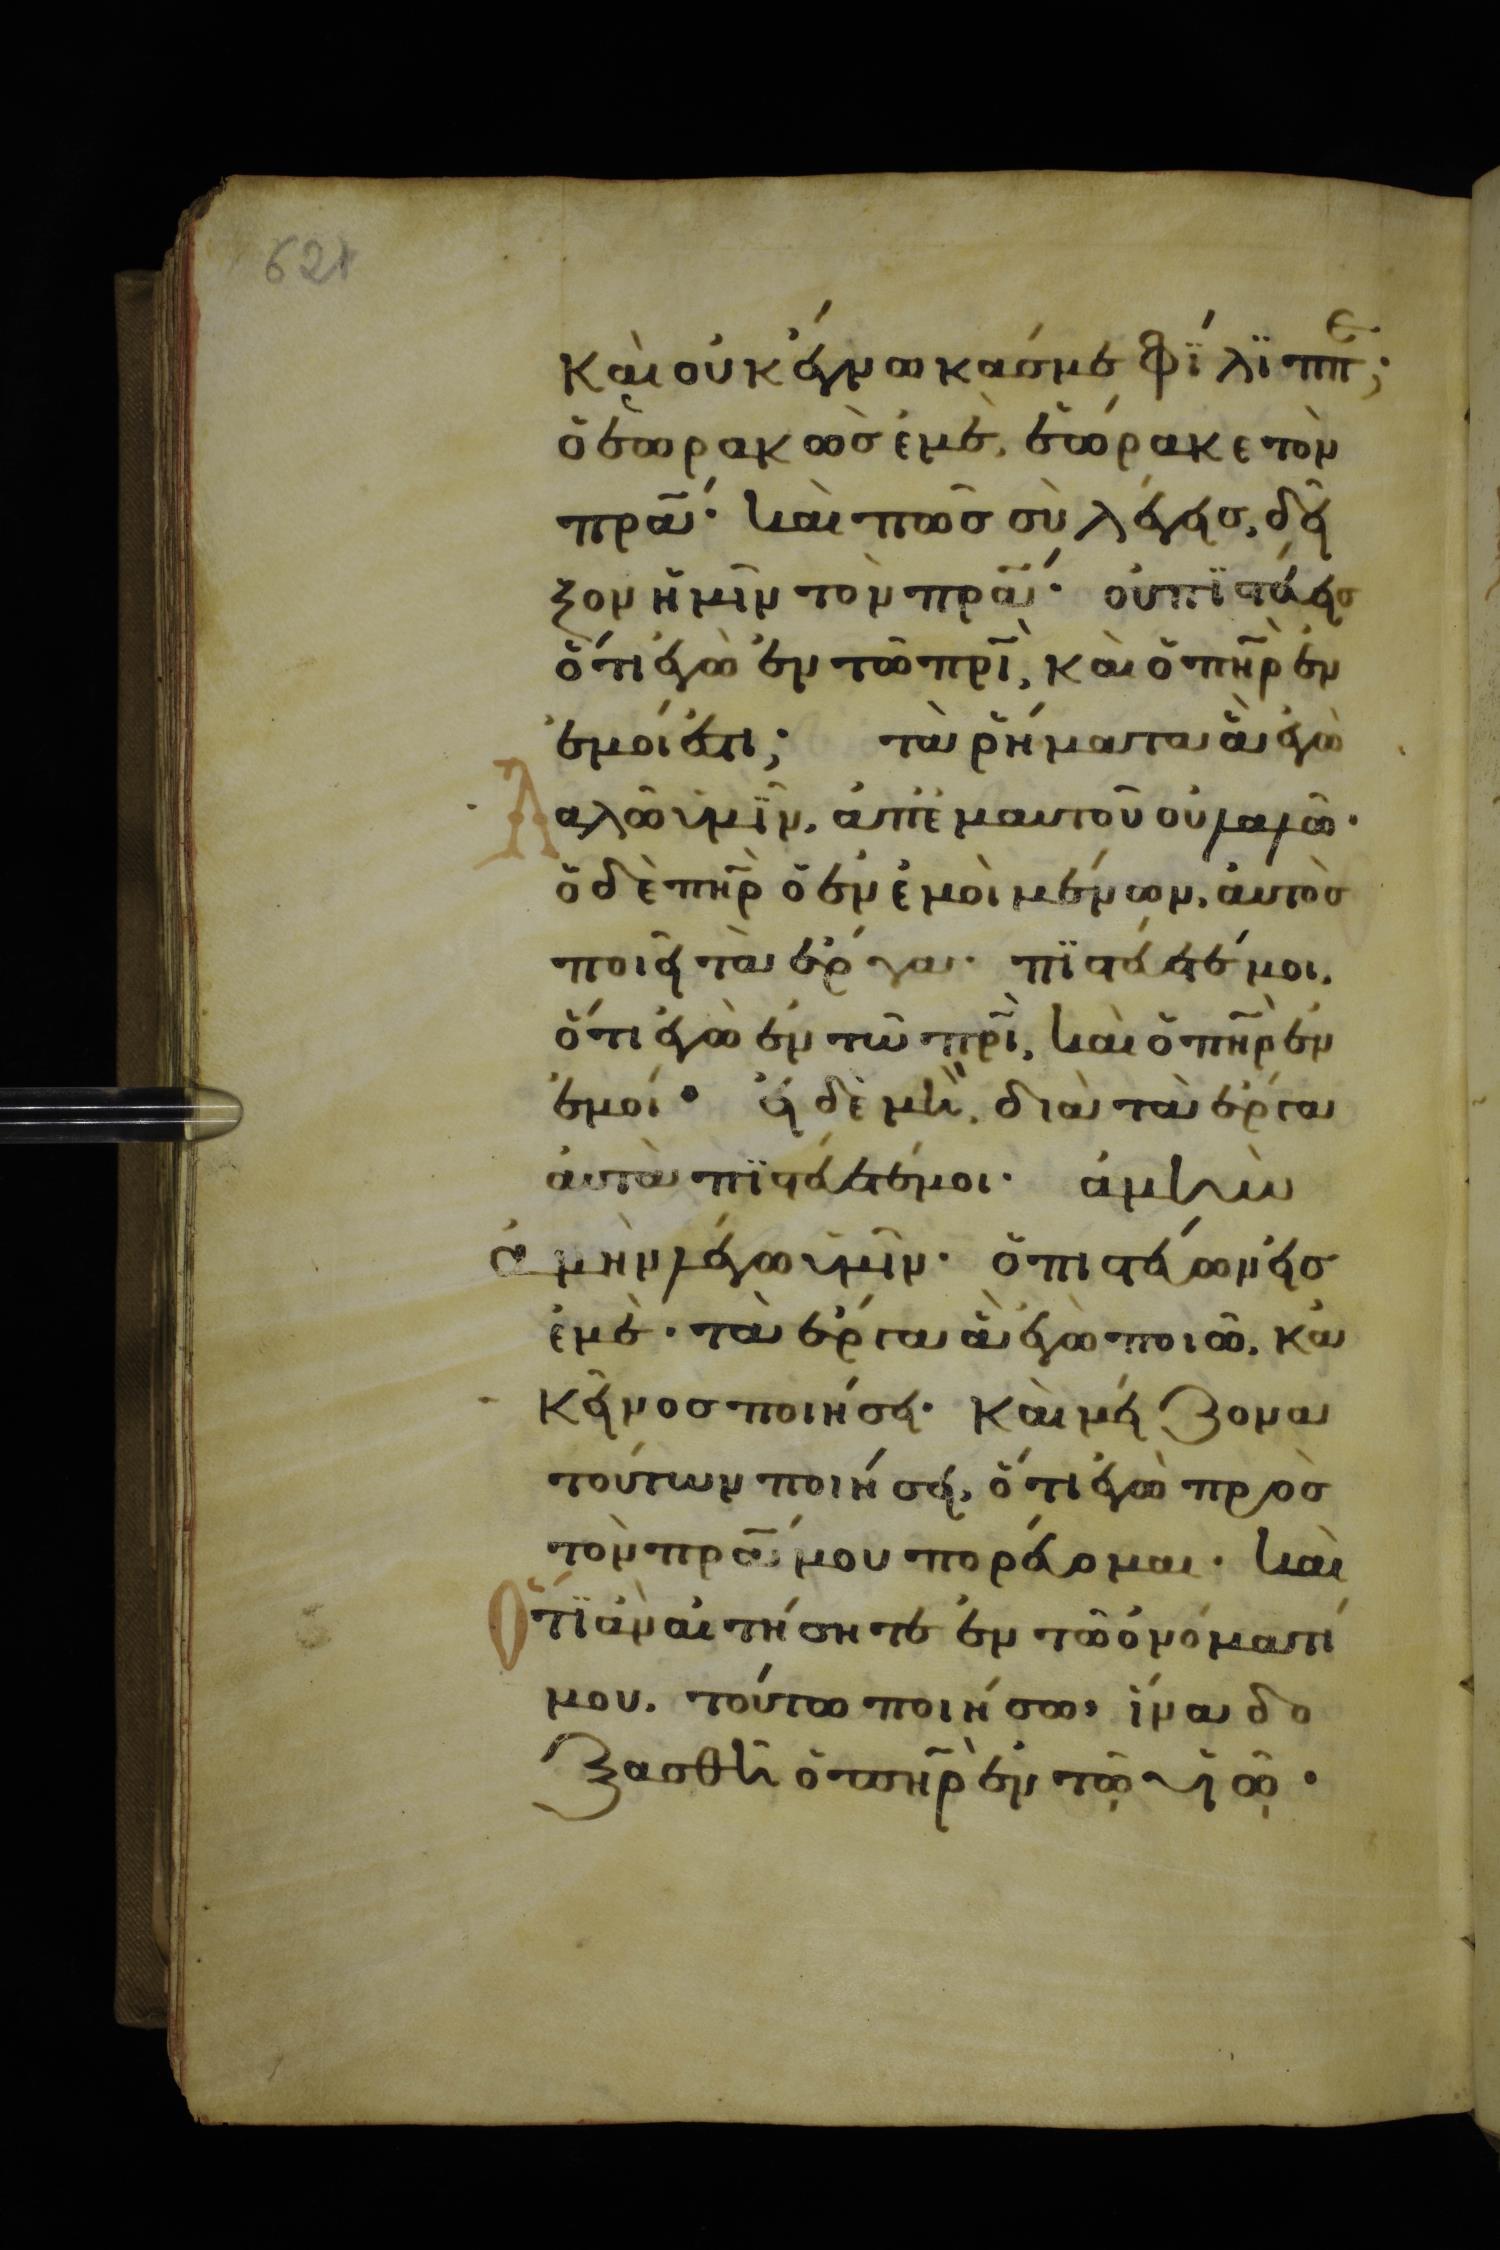 621
καὶ οὐκ ἔγνωκασ με φίλιππε;
ὁ ἑωρακὼσ ἐμὲ, ἑώρακε τὸν
πρα̅· καὶ πῶσ σὺ λέγεισ, δεῖ
ξον ἡμῖν τὸν πρα̅· οὐ πιστεύεισ
ὅτι ἐγὼ ἐν τῶ πρι̅, καὶ ὁ πη̅ρ ἐν
ἐμοί ἐστι; τὰ ῥήματα ἃ ἐγὼ
λαλῶ ὑμῖν, ἀπ' ἐμαυτοῦ οὐ λαλῶ·
ὁ δὲ πη̅ρ ὁ ἐν ἐμοὶ μένων, αὐτὸσ
ποιεῖ τὰ ἔργα· πιστεύετέ μοι,
ὅτι ἐγὼ ἐν τῶ πρι̅, καὶ ὁ πη̅ρ ἐν
ἐμοί· εἰ δὲ μὴ, διὰ τὰ ἔργα
αὐτὰ πιστεύετέ μοι· ἀμὴν
ἀμὴν λέγω ὑμῖν· ὁ πιστεύων εἰσ
ἐμὲ· τὰ ἔργα ἃ ἐγὼ ποιῶ, κἀ
κεῖνοσ ποιήσει· καὶ μείζονα
τούτων ποιήσει, ὅτι ἐγὼ πρὸσ
τὸν πρα̅ μου πορεύομαι· καὶ
ὅτι ἂν αἰτήσητε ἐν τῶ ὀνόματί
μου, τούτω ποιήσω, ἵνα δο
ξασθῆ ὁ πη̅ρ ἐν τῷ υἱῷ·